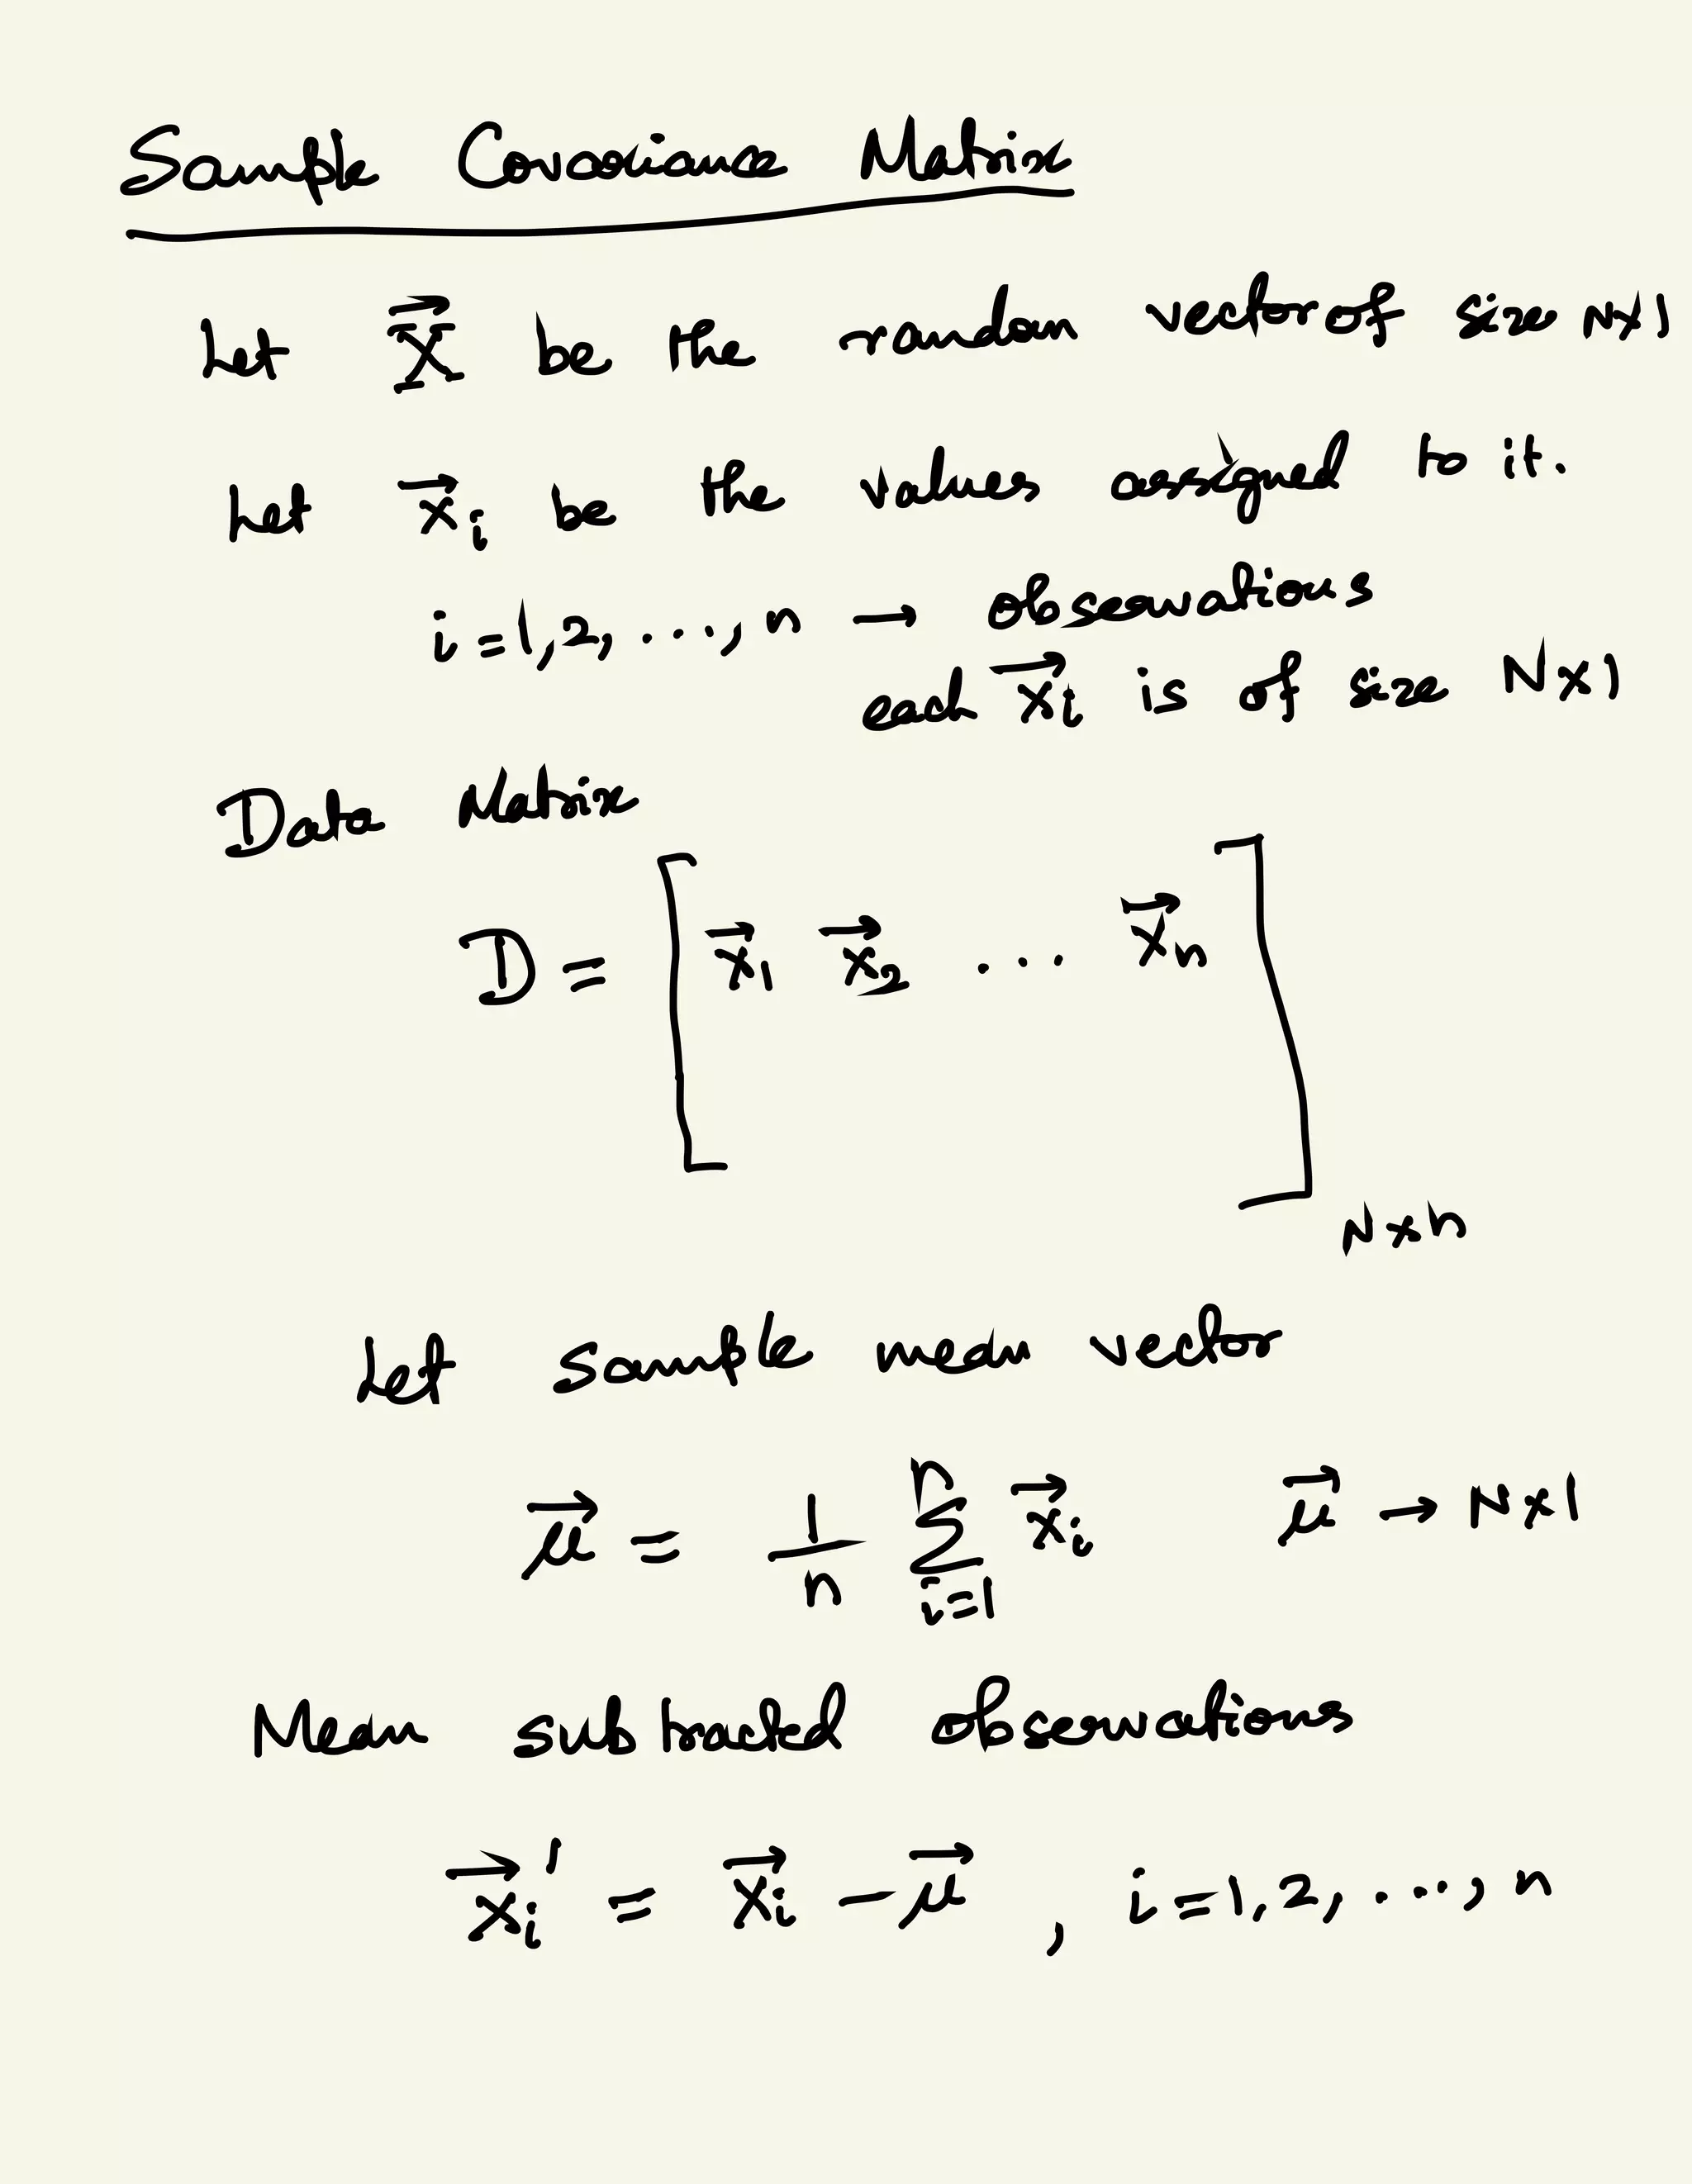 Sample Covariance Matrix
Let $\vec{X}$ be the random vector of size N×1
Let $\vec{x}_i$ be the values assigned to it.
i = 1, 2, ..., n → observations
each $\vec{x}_i$ is of size N×1
Data Matrix
D = [ $\vec{x}_1$ $\vec{x}_2$ ... $\vec{x}_n$ ] N×n
Let sample mean vector
$\vec{\mu} = \frac{1}{n} \sum_{i=1}^{n} \vec{x}_i$ $\vec{\mu}$ → N×1
Mean subtracted observations
$\vec{x}_i' = \vec{x}_i - \vec{\mu}$ , i = 1, 2, ..., n